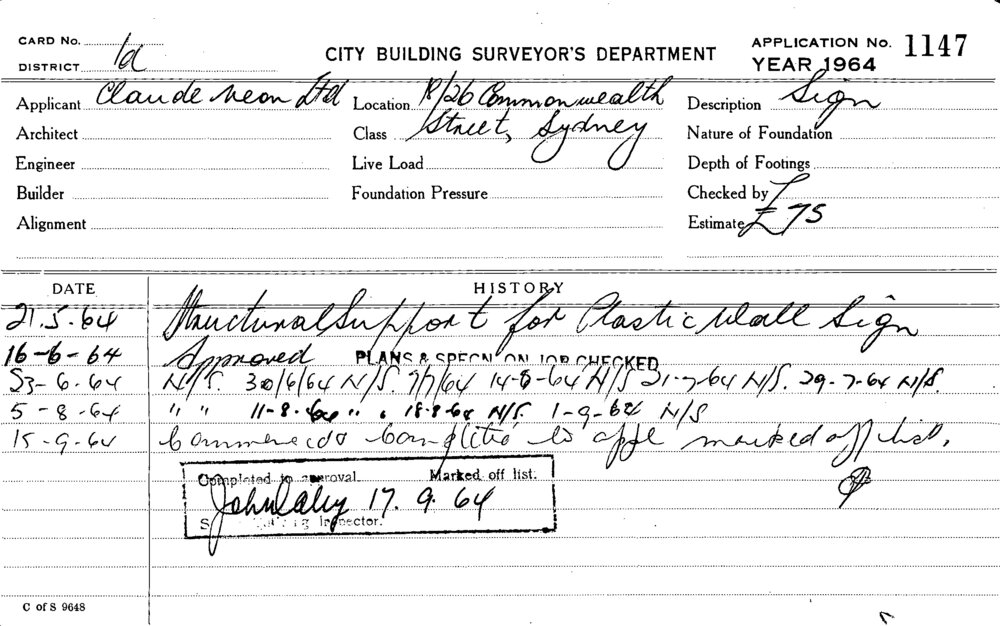 CARD No.
DISTRICT 1d
CITY BUILDING SURVEYOR'S DEPARTMENT
APPLICATION No. 1147
YEAR 1964
Applicant Claude Neon Ltd Location 18/26 Commonwealth Description Sign
Architect Class Street, Sydney Nature of Foundation
Engineer Live Load Depth of Footings
Builder Foundation Pressure Checked by
Alignment Estimate £75
DATE HISTORY
21.5.64 Structural Support for Plastic Wall Sign
16-6-64 Approved PLANS & SPECN ON JOB CHECKED
23-6-64 N/S. 30/6/64 N/S. 7/7/64 14-8-64 N/S 21-7-64 N/S. 29-7-64 N/S.
5-8-64 " " 11-8-64 " " 18-8-64 N/S. 1-9-64 N/S
15-9-64 Completed to appl marked off list.
Completed to approval. Marked off list.
John Daley 17.9.64
Inspector.
C of S 9648